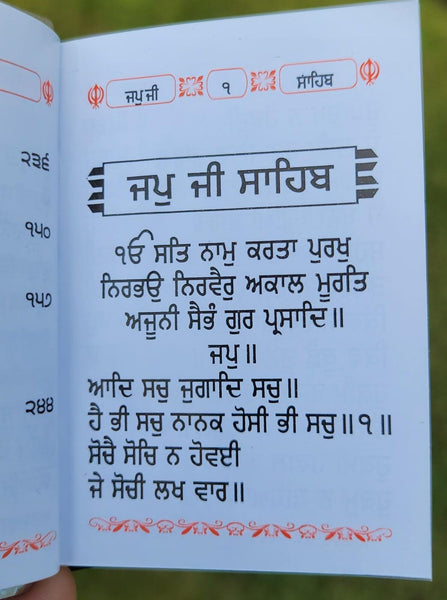 ੨੩੬
੧੫੦
੧੫੭
੨੪੪
ਜਪੁ ਜੀ ੧ ਸਾਹਿਬ
ਜਪੁ ਜੀ ਸਾਹਿਬ
ੴ ਸਤਿ ਨਾਮੁ ਕਰਤਾ ਪੁਰਖੁ
ਨਿਰਭਉ ਨਿਰਵੈਰੁ ਅਕਾਲ ਮੂਰਤਿ
ਅਜੂਨੀ ਸੈਭੰ ਗੁਰ ਪ੍ਰਸਾਦਿ॥
ਜਪੁ॥
ਆਦਿ ਸਚੁ ਜੁਗਾਦਿ ਸਚੁ॥
ਹੈ ਭੀ ਸਚੁ ਨਾਨਕ ਹੋਸੀ ਭੀ ਸਚੁ॥੧॥
ਸੋਚੈ ਸੋਚਿ ਨ ਹੋਵਈ
ਜੇ ਸੋਚੀ ਲਖ ਵਾਰ॥